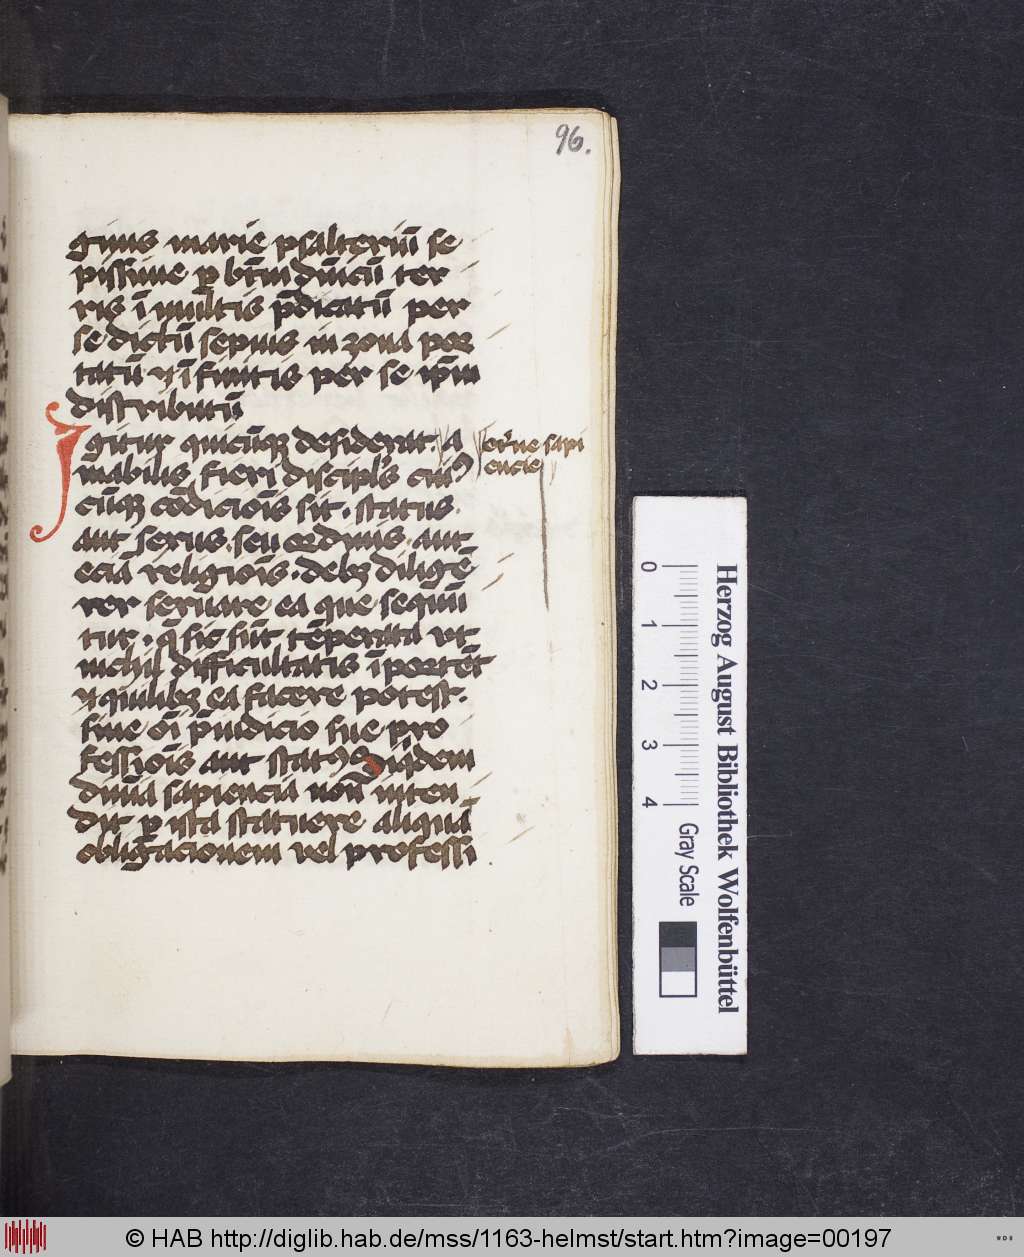 96.
ginis marie psalteriū se
pissime ꝑ btm̄ dn̄icū ter
ris ī multis p̄dicatū per
se dictū sepius in zona por
tatū ⁊ ī finitis per se ip̄m
distributū
Igitur quicūqꝫ desiderat a
mabilis fieri discipl's cuiꝰ
cūqꝫ cōdiciōis sit. status.
aut sexus. seu ordinis. aut
eciā religiōis. debꝫ diligē
ter seruare ea que sequū
tur. q̄ sic sūt tēperata vt
nichil difficultatis īportēt
⁊ quilibꝫ ea facere potest.
sine oī p̄iudicio sue pro
fessiōis aut statꝰ Siqdem
diuīa sapiencia non inten
dit ꝑ ista statuere aliquā
obligacionem vel professi
et'ne sapi
encie
Herzog August Bibliothek Wolfenbüttel
0 1 2 3 4
Gray Scale
© HAB http://diglib.hab.de/mss/1163-helmst/start.htm?image=00197